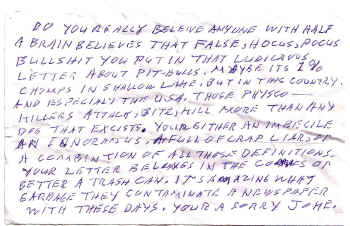 DO YOU REALLY BELEIVE ANYONE WITH HALF
A BRAIN BELIEVES THAT FALSE, HOCUS, POCUS
BULLSHIT YOU PUT IN THAT LUDICROUS
LETTER ABOUT PIT-BULLS. MAYBE ITS 1%
CHOMPS IN SHALLOW LAKE, BUT IN THIS COUNTRY.
AND ESPECIALLY THE USA. THOSE PHYSCO—
KILLERS ATTACK, BITE, KILL MORE THAN ANY
DOG THAT EXCISTS. YOUR EITHER AN IMBECILE
AN IGNORAMUS, A FULL OF CRAP LIAR, OR
A COMBINATION OF ALL THOSE DEFINITIONS.
YOUR LETTER BELONGS IN THE OR
BETTER A TRASH CAN. IT'S AMAZING WHAT
GARBAGE THEY CONTAMINATE A NEWSPAPER
WITH THESE DAYS. YOUR A SORRY JOKE.